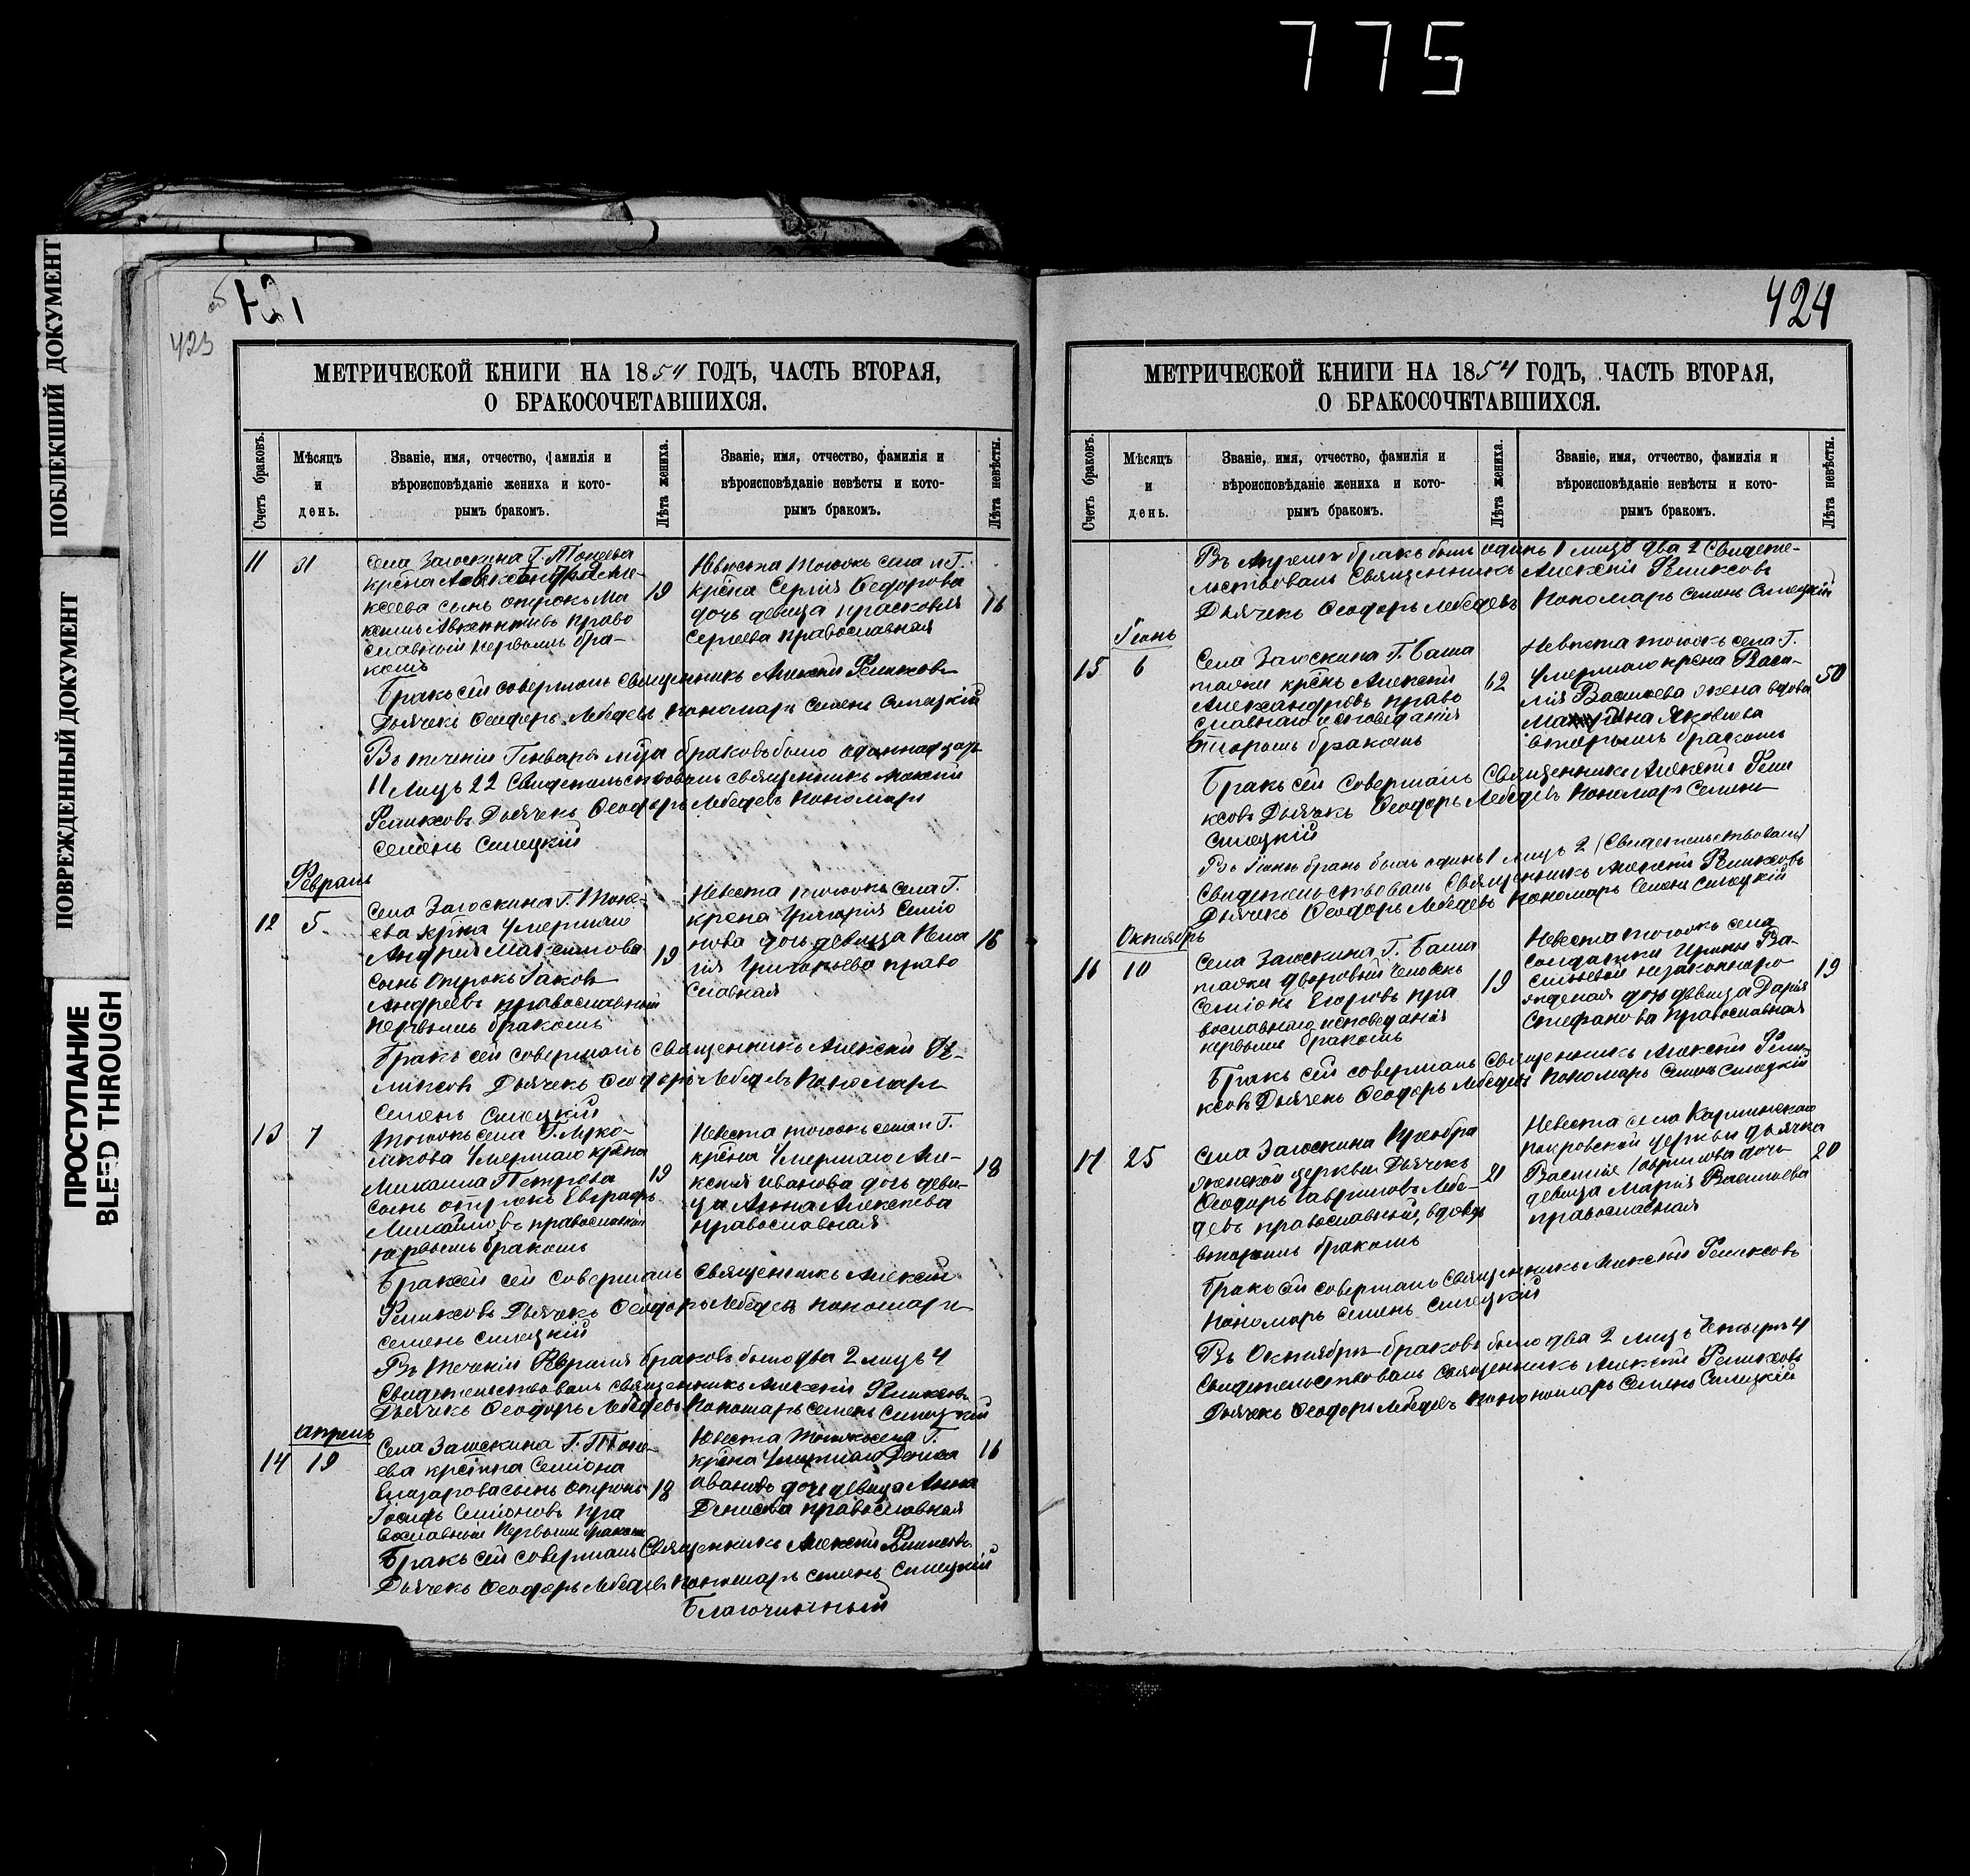 775
ПОБЛЕКШИЙ ДОКУМЕНТ
ПОВРЕЖДЕННЫЙ ДОКУМЕНТ
ПРОСТУПАНИЕ
BLEED THROUGH
об
423
МЕТРИЧЕСКОЙ КНИГИ НА 1854 ГОДЪ, ЧАСТЬ ВТОРАЯ,
О БРАКОСОЧЕТАВШИХСЯ.
Счетъ браковъ.
Мѣсяцъ
и
день.
Званіе, имя, отчество, фамилія и
вѣроисповѣданіе жениха и кото-
рымъ бракомъ.
Лѣта жениха.
Званіе, имя, отчество, фамилія и
вѣроисповѣданіе невѣсты и кото-
рымъ бракомъ.
Лѣта невѣсты.
11
31
Села Загоскина Г.
сынъ отрокъ Ма
право
славный первымъ бра-
комъ
19
Невѣста тогожъ села и Г.
крѣна Сергія Ѳедорова
дочь девица Прасковья
Сергеева православная
16
Бракъ сей совершалъ Священникъ Алексій Феликсовъ
Дьячекъ Ѳеодоръ Лебедевъ Пономарь Семенъ
Въ теченіи Генваря мца браковъ было одиннадцать
11 Лицъ 22 Свидетельствовалъ священникъ Алексій
Феликсовъ Дьячекъ Ѳеодоръ Лебедевъ Пономарь
Семенъ
Февраль
12
5
Села Загоскина Г.
умершаго
Андрея Максимова
сынъ Отрокъ Іаковъ
Андреевъ православный
первымъ бракомъ
19
Невеста тогожъ села Г.
крена Григорія Семіо
нова дочь девица Пела
гія Григорьева право
славная
Бракъ сей совершалъ священникъ Алексій Фе-
ликсовъ Дьячекъ Ѳеодоръ Лебедевъ Пономарь
Семенъ
13
7
Тогожъ села Г.
умершаго крѣна
Михаила Петрова
сынъ отрокъ Евграфъ
Михайловъ православный
первымъ бракомъ
19
Невеста тогожъ села и Г.
крѣна Умершаго Але-
ксѣя Иванова дочь деви-
ца Анна Алексѣева
православная
18
сей совершалъ Священникъ Алексій
Феликсовъ Дьячекъ Ѳеодоръ Лебедевъ Пономарь
Семенъ
Въ теченіи Февраля браковъ было два 2 лицъ 4
Свидетельствовалъ священникъ Алексій Феликсовъ
Дьячекъ Ѳеодоръ Лебедевъ Пономарь Семенъ
апрель
14
19
Села Загоскина Г.
Семіона
сынъ отрокъ
Іосифъ Семіоновъ пра
вославный первымъ бракомъ
18
Невеста тогожъ села Г.
крѣна Умершаго Дениса
Иванова дочь девица Анна
Денисова православная
16
Бракъ сей совершалъ Священникъ Алексій Феликсовъ
Дьячекъ Ѳеодоръ Лебедевъ Пономарь Семенъ
Благочинный
424
МЕТРИЧЕСКОЙ КНИГИ НА 1854 ГОДЪ, ЧАСТЬ ВТОРАЯ,
О БРАКОСОЧЕТАВШИХСЯ.
Счетъ браковъ.
Мѣсяцъ
и
день.
Званіе, имя, отчество, фамилія и
вѣроисповѣданіе жениха и кото-
рымъ бракомъ.
Лѣта жениха.
Званіе, имя, отчество, фамилія и
вѣроисповѣданіе невѣсты и кото-
рымъ бракомъ.
Лѣта невѣсты.
Въ Апреле бракъ былъ одинъ 1 лицъ два 2 Свидете-
льствовалъ Священникъ Алексій Феликсовъ
Дьячекъ Ѳеодоръ Лебедевъ Пономарь Семенъ
Іюнь
15
6
Села Загоскина Г. Баш
крѣнъ Алексѣй
Александровъ право
славнаго исповеданія
вторымъ бракомъ
62
Невѣста тогожъ села Г.
Умершаго крѣна Васи-
лія Васильева жена вдова
Яковлева
вторымъ бракомъ
50
Бракъ сей совершалъ Священникъ Алексій Фели
ксовъ Дьячекъ Ѳеодоръ Лебедевъ Пономарь Семенъ
Въ Іюнѣ бракъ былъ одинъ 1 лицъ 2 (Свидетельствовалъ)
Свидетельствовалъ Священникъ Алексій Феликсовъ
Дьячекъ Ѳеодоръ Лебедевъ Пономарь Семенъ
Октябрь
16
10
Села Загоскина Г. Баш
дворовый человекъ
Семіонъ Егоровъ пра
вославнаго исповеданія
первымъ бракомъ
19
Невеста тогожъ села
солдатки Ирины Ва-
сильевой незаконноро
жденая дочь девица Дарія
Стефанова православная
19
Бракъ сей совершалъ Священникъ Алексій Фели-
ксовъ Дьячекъ Ѳеодоръ Лебедевъ Пономарь Семенъ
17
25
Села Загоскина Преобра
женской церкви Дьячекъ
Ѳеодоръ Гавриловъ Лебе-
девъ православный, вдовецъ
вторымъ бракомъ
21
Невеста села
покровской церкви дьячка
Василія Гаврилова дочь
девица Марія Васильева
православная
20
Бракъ сей совершалъ Священникъ Алексій Феликсовъ
Пономарь Семенъ
Въ Октябрѣ браковъ было два 2 лицъ четыре 4
Свидетельствовалъ Священникъ Алексій Феликсовъ
Дьячекъ Ѳеодоръ Лебедевъ Семенъ